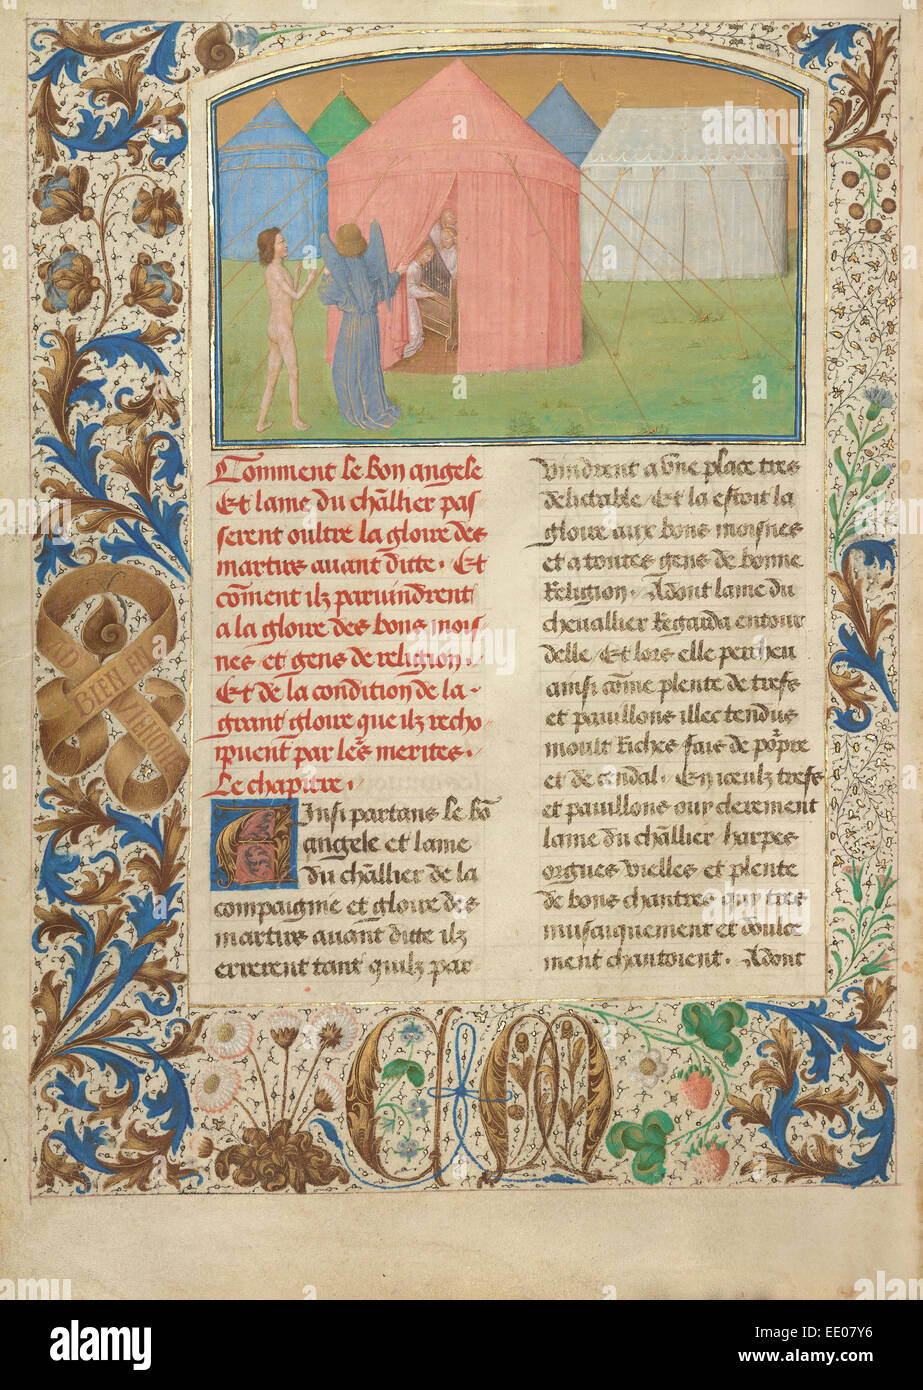 Comment le bon angele
Et lame du chãllier pas
serent oultre la gloire des
martirs auant ditte . Et
cõment ilz paruindrent
a la gloire des bons mois
nes et gens de religion .
Et de la condition de la
grant gloire que ilz recho
ipuent par lers merites .
Le chapitre .
Ainsi partans le bõ
angele et lame
du chãllier de la
compaignie et gloire des
martirs auant ditte ilz
errerent tant quilz par
uindrent a vne place tres
delictable / Et la estoit la
gloire aux bons moisnes
et a toutes gens de bonne
Religion . Adont lame du
cheuallier Regarda entour
delle / Et lors elle percheu
ainsi cõme plente de trefs
et pauillons illec tendus
moult Riches fais de põpre
et de cendal . En iceulz trefs
et pauillons ouy clerement
lame du chãllier harpes
orgues vielles et plente
de bons chantres quy tres
musaiquement et doulce
ment chantoient . Adont
BIEN EN
AVIENGNE
CM
alamy stock photo
alamy
EE07Y6
www.alamy.com